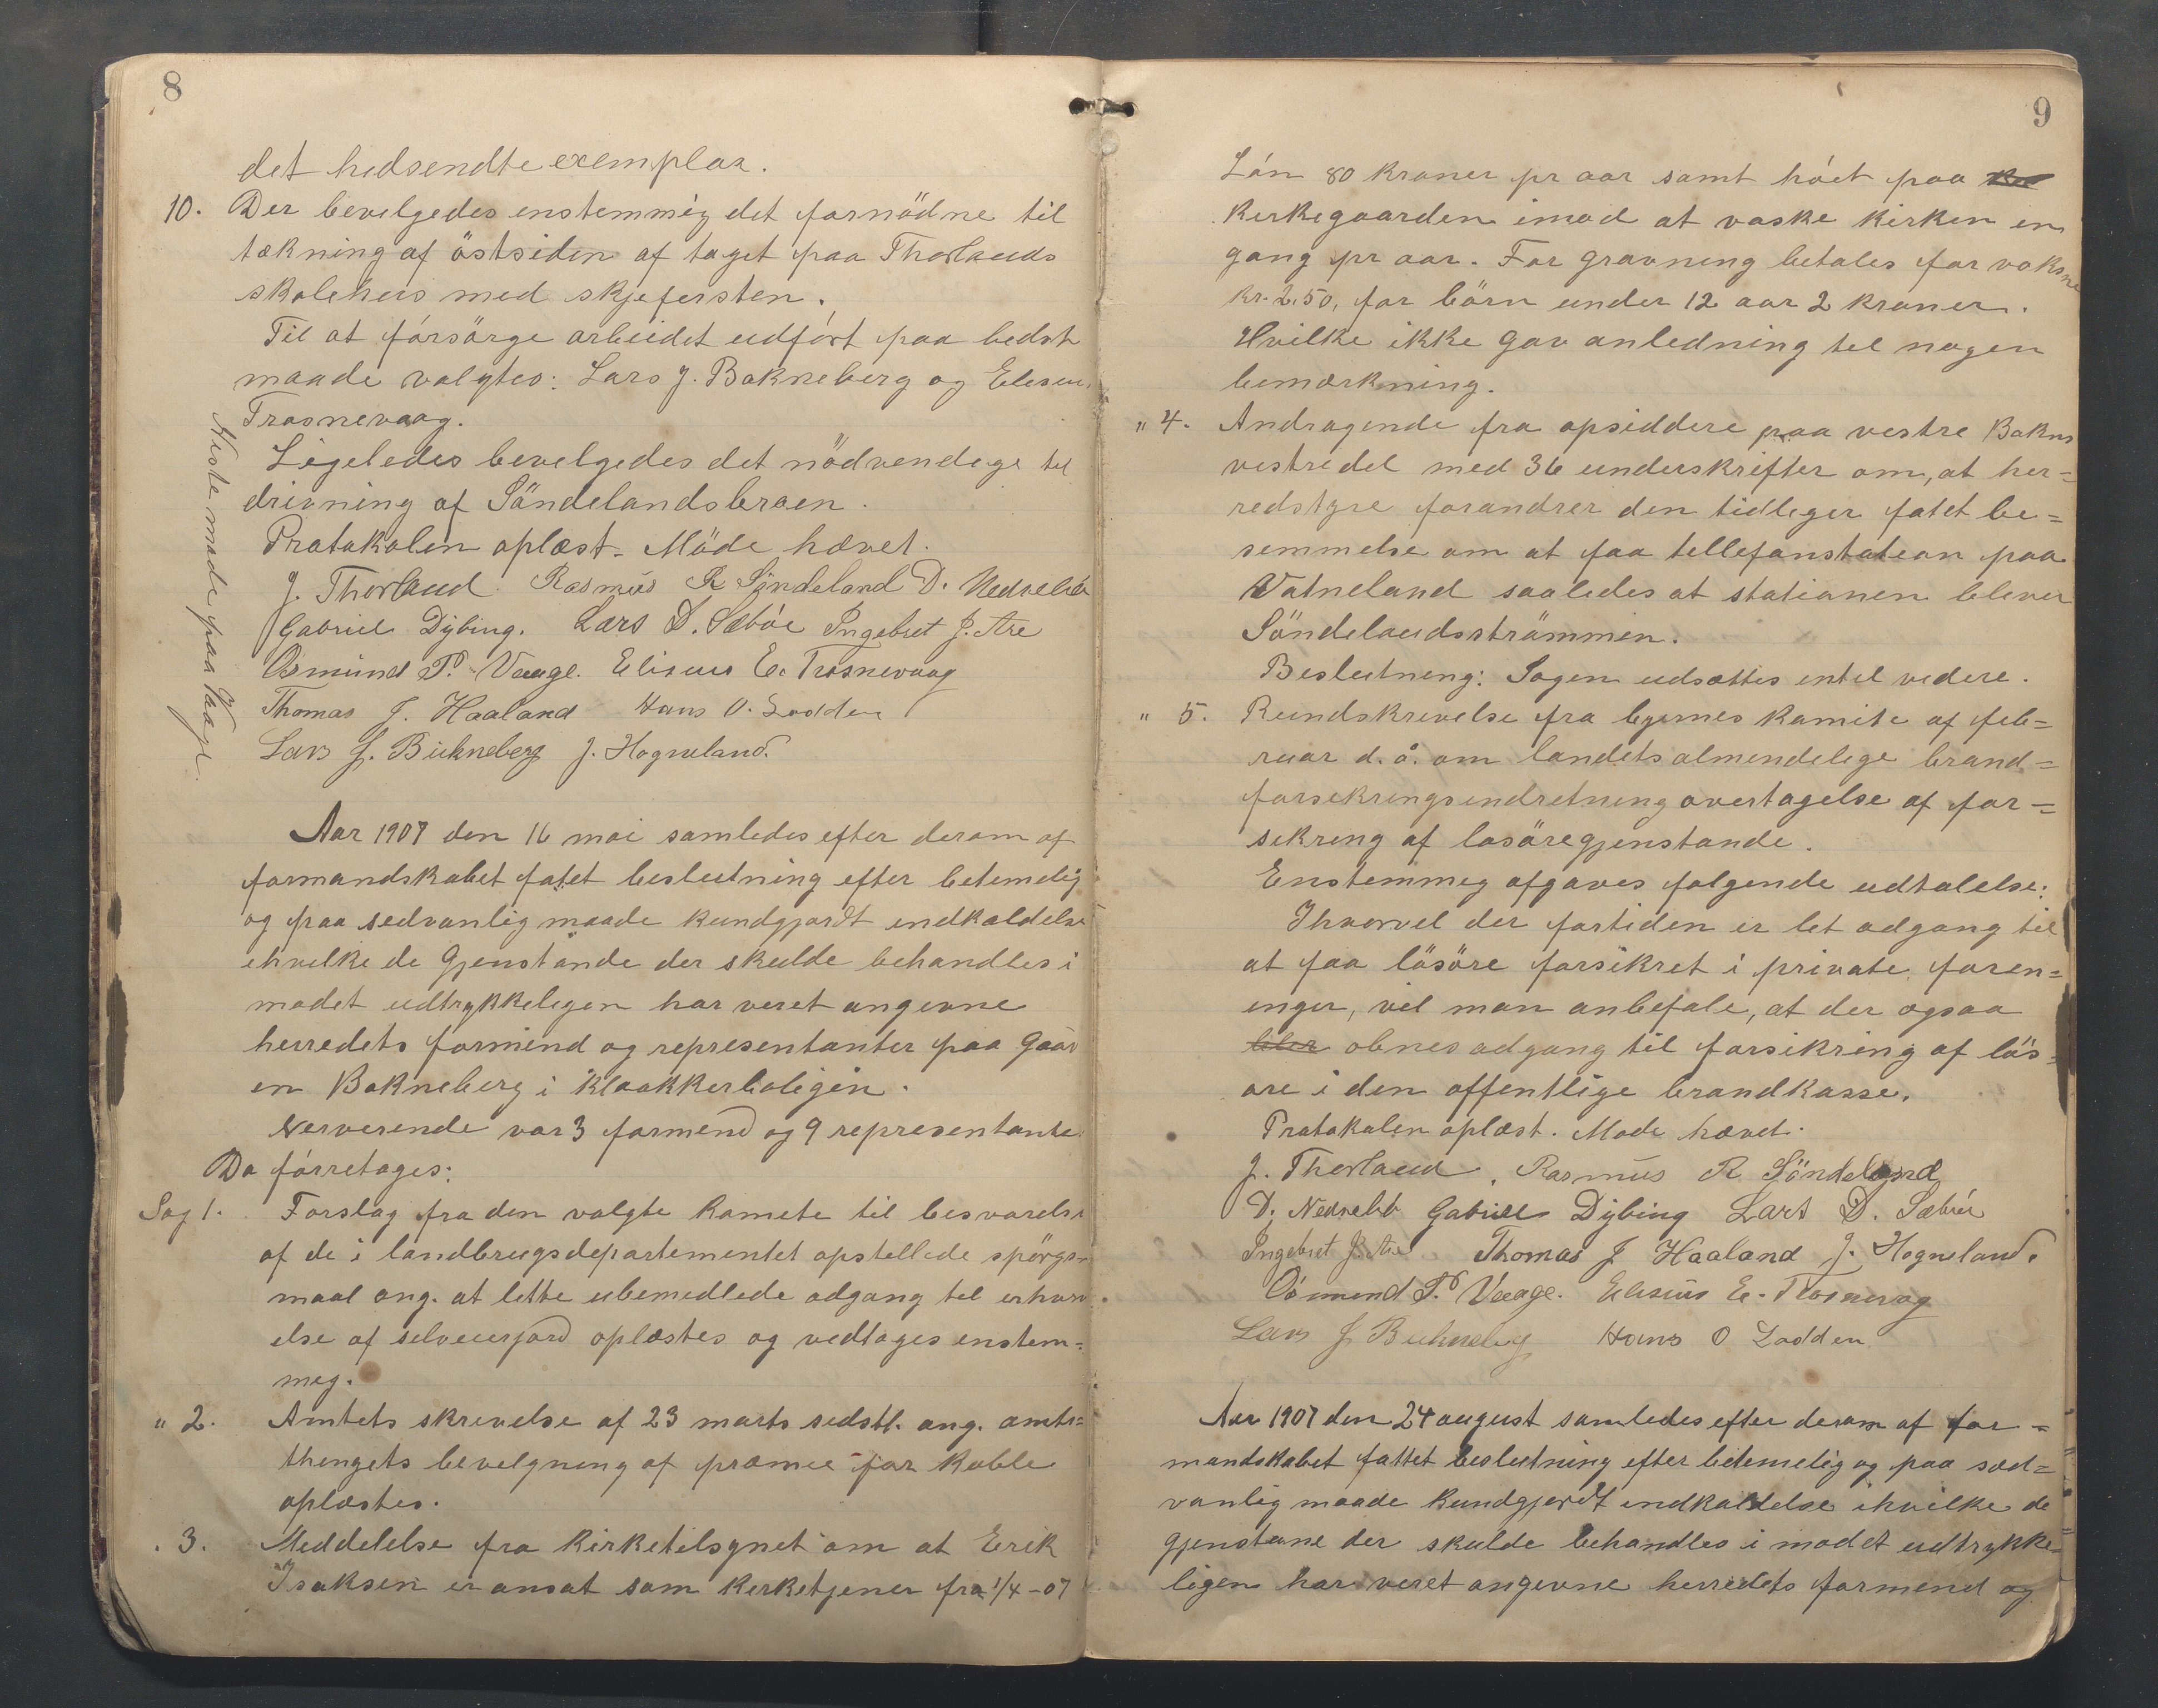 8
det hedsendte exemplar.
10. Der bevelgedes enstemmig det fornödne til
tækning af östsiden af taget paa Thorlands
skolehus med skjefersten.
Til at fórsörge arbeidet udfórt paa bedst
maade valgtes: Lars J. Bokneberg og Eliseus
Trosnevaag.
Ligeledes bevelgedes det nödvendege til
drivning af Söndelandsbroen.
Protokolen oplæst. Möde hævet.
J. Thorland Rasmus R Söndeland D. Nedrebö
Gabriel Dybing. Lars D. Sæbóe Ingebret J. Are
Osmund P. Vaage. Eliseus E. Trosnevaag
Thomas J. Haaland Hans O. Lodden
Lars J. Bukneberg J. Hogneland.
Neste möde paa Vaage.
Aar 1907 den 16 mai samledes efter derom af
formandskabet fatet beslutning efter betemelig
og paa sedvanlig maade kundgjordt endkaldelse
ehvilke de Gjenstande der skulde behandles i
modet udtrykkelegen har veret angevne
herredets formend og representanter paa Gaar
en Bokneberg i klookkerboligen.
Nerverende var 3 formend og 9 representante
Da fórretages:
Sag 1. Forslag fra den valgte komete til besvarelse
af de i landbrugsdepartementet opstellede spörgs-
maal ang. at lette ubemedlede adgang til erhverv
else af selveierjord oplæstes og vedtages enstem-
meg.
" 2. Amtets skrevelse af 23 marts sidstl. ang. amts=
thengets bevelgneng af præmee for kobbe
oplæstes.
. 3. Meddelelse fra kirketilsynet om at Erik
Isaksen er ansat som kerketjener fra 1/4-07
9
Lón 80 kroner pr aar samt hóet paa
kerkegaarden imod at vaske kirken en
gang pr aar. For gravning betales for voksne
kr. 2,50, for börn under 12 aar 2 kroner.
Hvilke ikke gav anledning tel nogen
bemærkning.
" 4. Andragende fra opsiddere paa vestre Bokns
vestredel med 36 underskrifter om, at her=
redstyre forandrer den tidleger fatet be=
semmelse om at faa tellefonstateon paa
Vatneland saaledes at stationen blever
Söndelandsströmmen.
Beslutneng: Sagen udsættes entel vedere.
" 5. Rundskrevelse fra byernes komite af feb=
ruar d. å. om landets almendelege brand=
forsekringsendretneng overtagelse af for=
sekreng af losöregjenstande.
Enstemmeg afgaves folgende udtalelse:
Ihvorvel der fortiden er let adgang til
at faa lösöre forsikret i private foren=
enger, vil man anbefale, at der ogsaa
bler obnes adgang til forsikring af lös=
ore i den offentlige brandkasse.
Protokolen oplæst. Mode hævet.
J. Thorland, Rasmus R Söndeland
D. Nedrebö Gabriel Dybing Lars D. Sæbóe
Ingebret J. Are Thomas J Haaland J. Hogneland.
Osmund P. Vaage. Eliseus E. Trosnevag
Lars J Bukneberg Hans O Lodden
Aar 1907 den 24 august samledes efter derom af for=
mandskabet fattet beslutning efter betemelig og paa sæd=
vanlig maade kundgjordt indkaldelse ihvilke de
gjenstane der skulde behandles i modet udtrykke=
ligen har veret angevne herredets formend og